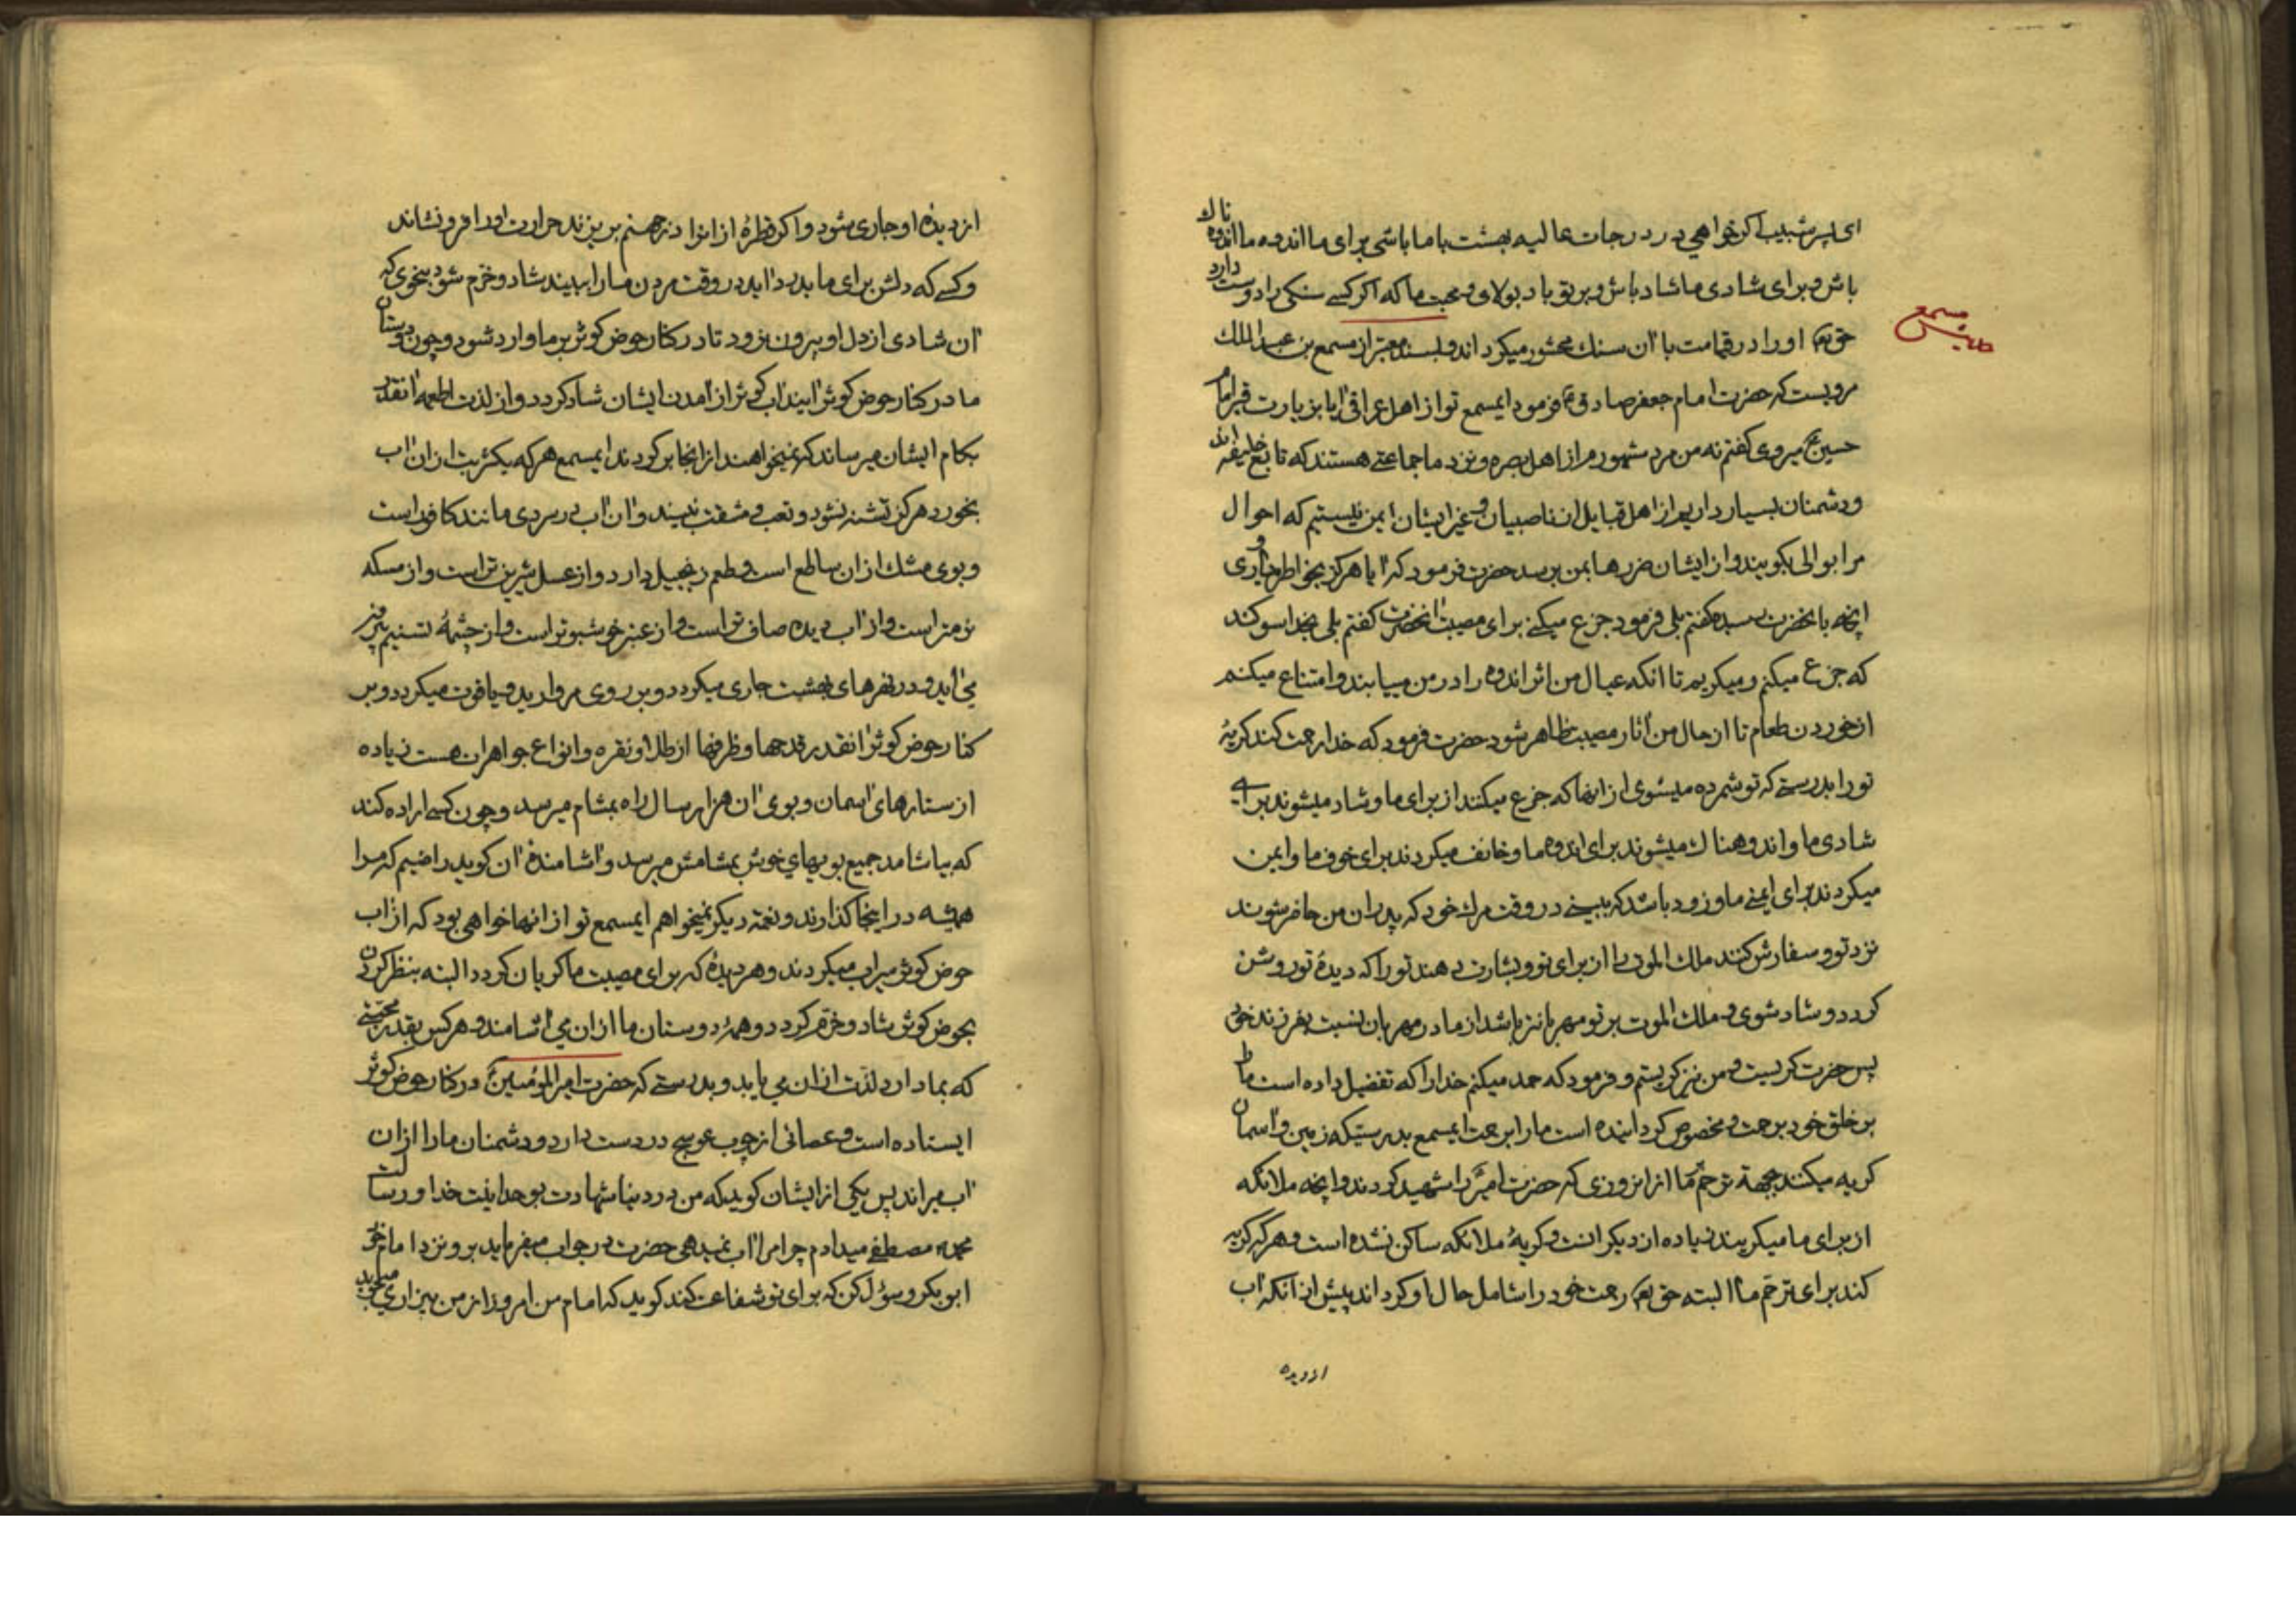 ای پسر شبیب اکر خواهی در درجات عالیه بهشت با ما باشی برای ما اندوه ما اندوه ناك
باش و برای شادی ما شاد باش و بر تو باد بولای و محبت ما که اکر کسی سنکی را دوست دارد
حق تعم او را در قیامت با آن سنك محشور میکرداند و بسند معتبر از مسمع بن عبد الملك
حدیث مسمع
مرویست که حضرت امام جعفر صادق ع فرمود ایمسمع تو از اهل عراقی آیا بزیارت قبر امام
حسین ع میروی کفتم نه من مرد مشهورم از اهل بصره و نزد ما جماعتی هستند که تابع خلیفه اند
و دشمنان بسیار داریم از اهل قبایل از ناصبیان و غیر ایشان ایمن نیستیم که احوال
مرا بوالی بکویند و از ایشان ضررها بمن برسد حضرت فرمود که آیا هرکز بخواطر میاوری
آنچه بانحضرت رسیده کفتم بلی فرمود جزع میکنی برای مصیبت آنحضرت کفتم بلی بخدا سوکند
که جزع میکنم و میکریم تا آنکه عیال من اثر اندوه را در من مییابند و امتناع میکنم
از خوردن طعام تا از حال من آثار مصیبت ظاهر شود حضرت فرمود که خدا رحمت کند کریهٔ
تو را بدرستی که تو شمرده میشوی از آنها که جزع میکنند از برای ما و شاد میشوند برای
شادی ما و اندوهناك میشوند برای اندوه ما و خائف میکردند برای خوف ما و ایمن
میکردند برای ایمنی ما و زود باشد که ببینی در وقت مرك خود که پدران من حاضر شوند
نزد تو و سفارش کنند ملك الموت را از برای تو و بشارت دهند تو را که دیدهٔ تو روشن
کردد و شاد شوی و ملك الموت بر تو مهربانتر باشد از مادر مهربان نسبت بفرزند خود
پس حضرت کریست و من نیز کریستم و فرمود که حمد میکنم خدا را که تفضیل داده است ما را
بر خلق خود برحمت و مخصوص کردانیده است ما را برحمت ایمسمع بدرستیکه زمین و آسمان
کریه میکنند بجهة ترحم ما از آنروزی که حضرت امیر ع را شهید کردند و آنچه ملائکه
از برای ما میکریند زیاده از دیکرانست و کریهٔ ملائکه ساکن نشده است و هرکه کریه
کند برای ترحّم ما البته حق تعم رحمت خود را شامل حال او کرداند پیش از آنکه آب
از دیده
از دیدهٔ او جاری شود و اکر قطرهٔ از آنرا در جهنم بریزند حرارت او را فرو نشاند
و کسی که دلش برای ما بدرد آید در وقت مردن ما را ببیند شاد و خرّم شود بنحوی که
آن شادی از دل او بیرون نرود تا در کنار حوض کوثر بر ما وارد شود و چون دوستان
ما در کنار حوض کوثر آیند آب کوثر از آمدن ایشان شاد کردد و از لذت اطعمه آنقدر
بکام ایشان میرساند که نمیخواهند از آنجا برکردند ایمسمع هرکه یکشربت از آن آب
بخورد هرکز تشنه نشود و تعب و مشقت نبیند و آن آب در سردی مانند کافور است
و بوی مشك از آن ساطع است و طعم زنجبیل دارد و از عسل شیرین تر است و از مسکه
نرمتر است و از آب دیده صاف تر است و از عنبر خوشبوتر است و از چشمهٔ تسنیم بیرون
می آید و در نهرهای بهشت جاری میکردد و بر روی مروارید و یاقوت میکردد و بر
کنار حوض کوثر آنقدر قدحها و ظرفها از طلا و نقره و انواع جواهران هست زیاده
از ستارهای آسمان و بوی آن هزار سال راه بمشام میرسد و چون کسی اراده کند
که بیاشامد جمیع بویهای خوش بمشامش میرسد و آشامندهٔ آن کوید راضیم که مرا
همیشه در اینجا کذارند و نعمة دیکر نمیخواهم ایمسمع تو از آنها خواهی بود که از آب
حوض کوثر سیراب میکردند و هر دیدهٔ که برای مصیبت ما کریان کردد البته بنظر کردن
بحوض کوثر شاد و خرّم کردد و همهٔ دوستان ما از آن می آشامند و هرکس بقدر محبّتی
که بما دارد لذّت از آن می یابد و بدرستی که حضرت امیر المؤمنین ع در کنار حوض کوثر
ایستاده است و عصائی از چوب عوسج در دست دارد و دشمنان ما را از آن
آب میراند پس یکی از ایشان کوید که من در دنیا شهادت بوحدانیت خدا و رسالت
محمد مصطفی میدادم چرا مرا آب نمیدهی حضرت در جواب میفرماید برو نزد امام خود
ابوبکر و سؤل کن که برای تو شفاعت کند کوید که امام من امروز از من بیزاری میجوید